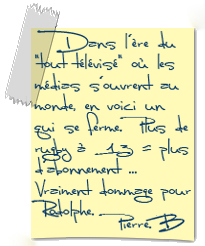 Dans l'ère du
"tout télévisé" où les
médias s'ouvrent au
monde, en voici un
qui se ferme. Plus de
rugby à 13 = plus
d'abonnement ...
Vraiment dommage pour
Rodolphe.
Pierre. B